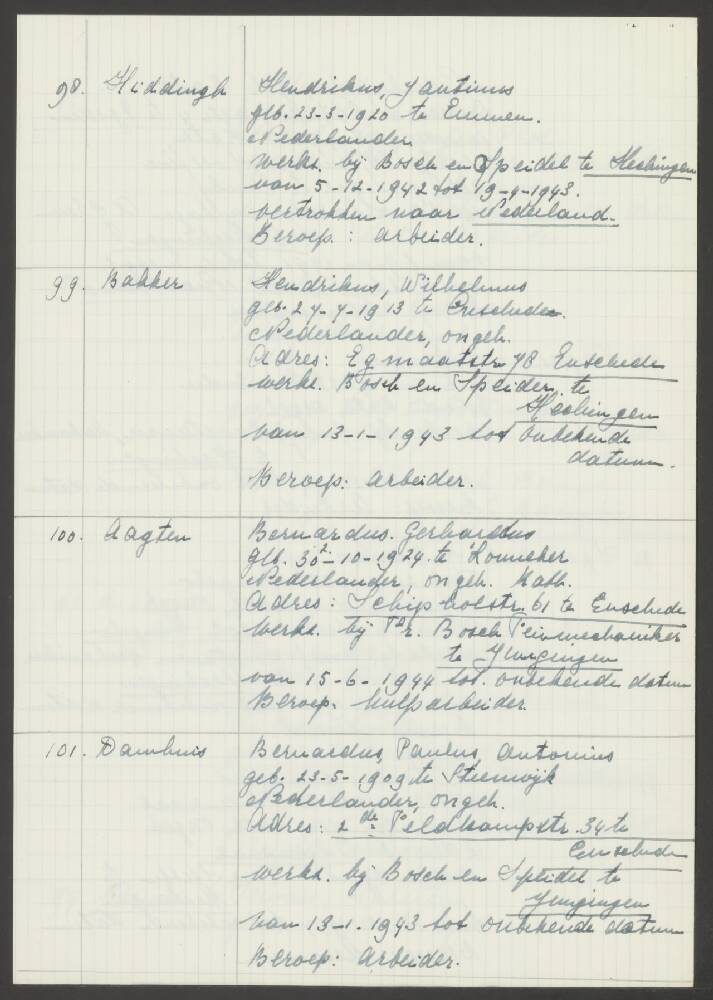 98. Hiddingh Hendrikus, Jantinus
geb. 23-3-1920 te Emmen.
Nederlander.
werkz. bij Bosch en Speidel te Hechingen
van 5-12-1942 tot 19-9-1943.
vertrokken naar Nederland.
Beroep. : arbeider.
99. Bakker Hendrikus, Wilhelmus
geb. 27-7-1913 te Enschede.
Nederlander, ongeh.
Adres: Egmaatstr 78 Enschede
werkz. Bosch en Speidel. te
Hechingen
van 13-1-1943 tot onbekende
datum.
Beroep: arbeider.
100. Aagten Bernardus. Gerhardus
geb. 30-10-1924 te Lonneker
Nederlander, ongeh. Kath.
Adres: Schipholstr. 61 te Enschede
werkz. bij Fr. Bosch Feinmechaniker
te Jungingen
van 15-6-1944 tot. onbekende datum
Beroep. hulparbeider.
101. Damhuis Bernardus, Paulus, Antonius
geb. 23-5-1909 te Steenwijk
Nederlander, ongeh.
Adres: 2de Veldkampstr. 34 te
Enschede
werkz. bij Bosch en Speidel te
Jungingen
van 13-1-1943 tot onbekende datum
Beroep: arbeider.